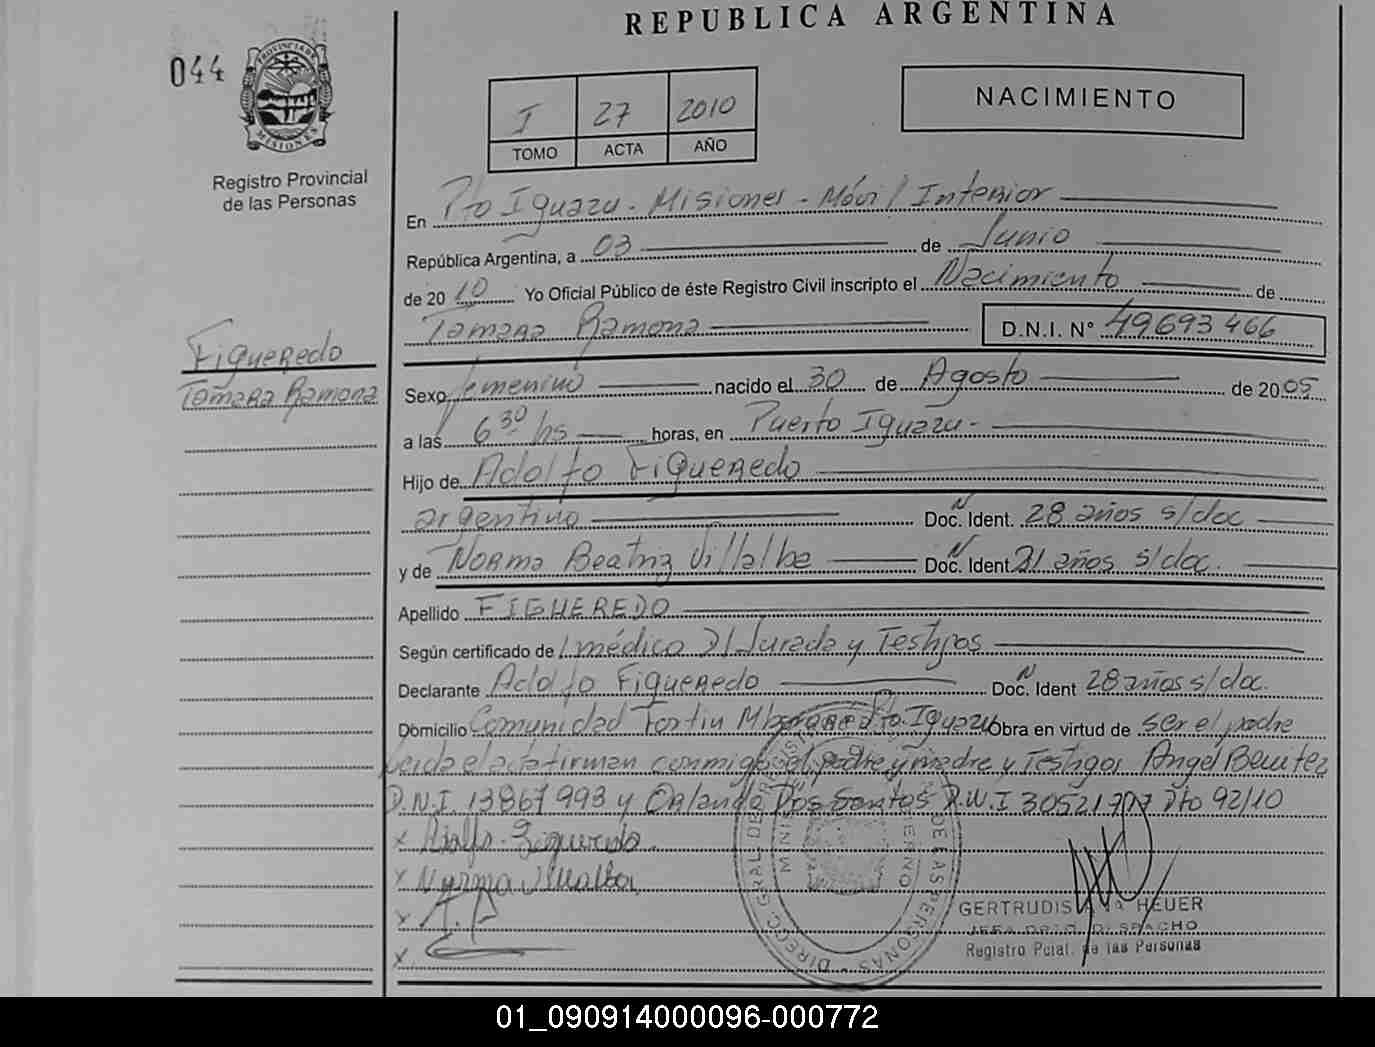 REPUBLICA ARGENTINA
044
PROVINCIA DE MISIONES
Registro Provincial
de las Personas
I 27 2010
TOMO ACTA AÑO
NACIMIENTO
En Pto Iguazu - Misiones - Móvil Interior
República Argentina, a 03 de Junio
de 2010 Yo Oficial Público de éste Registro Civil inscripto el Nacimiento de
Tamara Ramona D.N.I. N° 49693466
Figueredo
Tamara Ramona
Sexo femenino nacido el 30 de Agosto de 2005
a las 6 30 hs horas, en Puerto Iguazu -
Hijo de Adolfo Figueredo
argentino Doc. Ident. 28 años s/doc
y de Norma Beatriz Villalba Doc. Ident 21 años s/doc.
Apellido FIGUEREDO
Según certificado de / médico D/ Jurada y Testigos
Declarante Adolfo Figueredo Doc. Ident 28 años s/doc.
Domicilio Comunidad Fortin Mbororé Pto. Iguazu Obra en virtud de ser el padre
Leida el acta firman conmigo el padre y madre y Testigos Angel Benitez
D.N.I. 13867993 y Orlando Dos Santos D.N.I 30521707 Dto 92/10
x Adolfo Figueredo.
x Norma Villalba
x
x
DIRECC. GRAL. DE REGISTRO DE LAS PERSONAS
GERTRUDIS HEUER
JEFA DPTO. DESPACHO
Registro Pcial. de las Personas
01_090914000096-000772